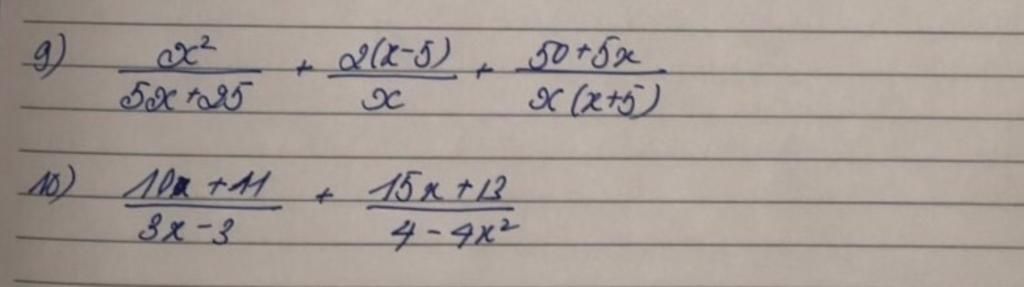 9) x²/(5x+25) + 2(x-5)/x + (50+5x)/(x(x+5))
10) (10x+11)/(3x-3) + (15x+13)/(4-4x²)